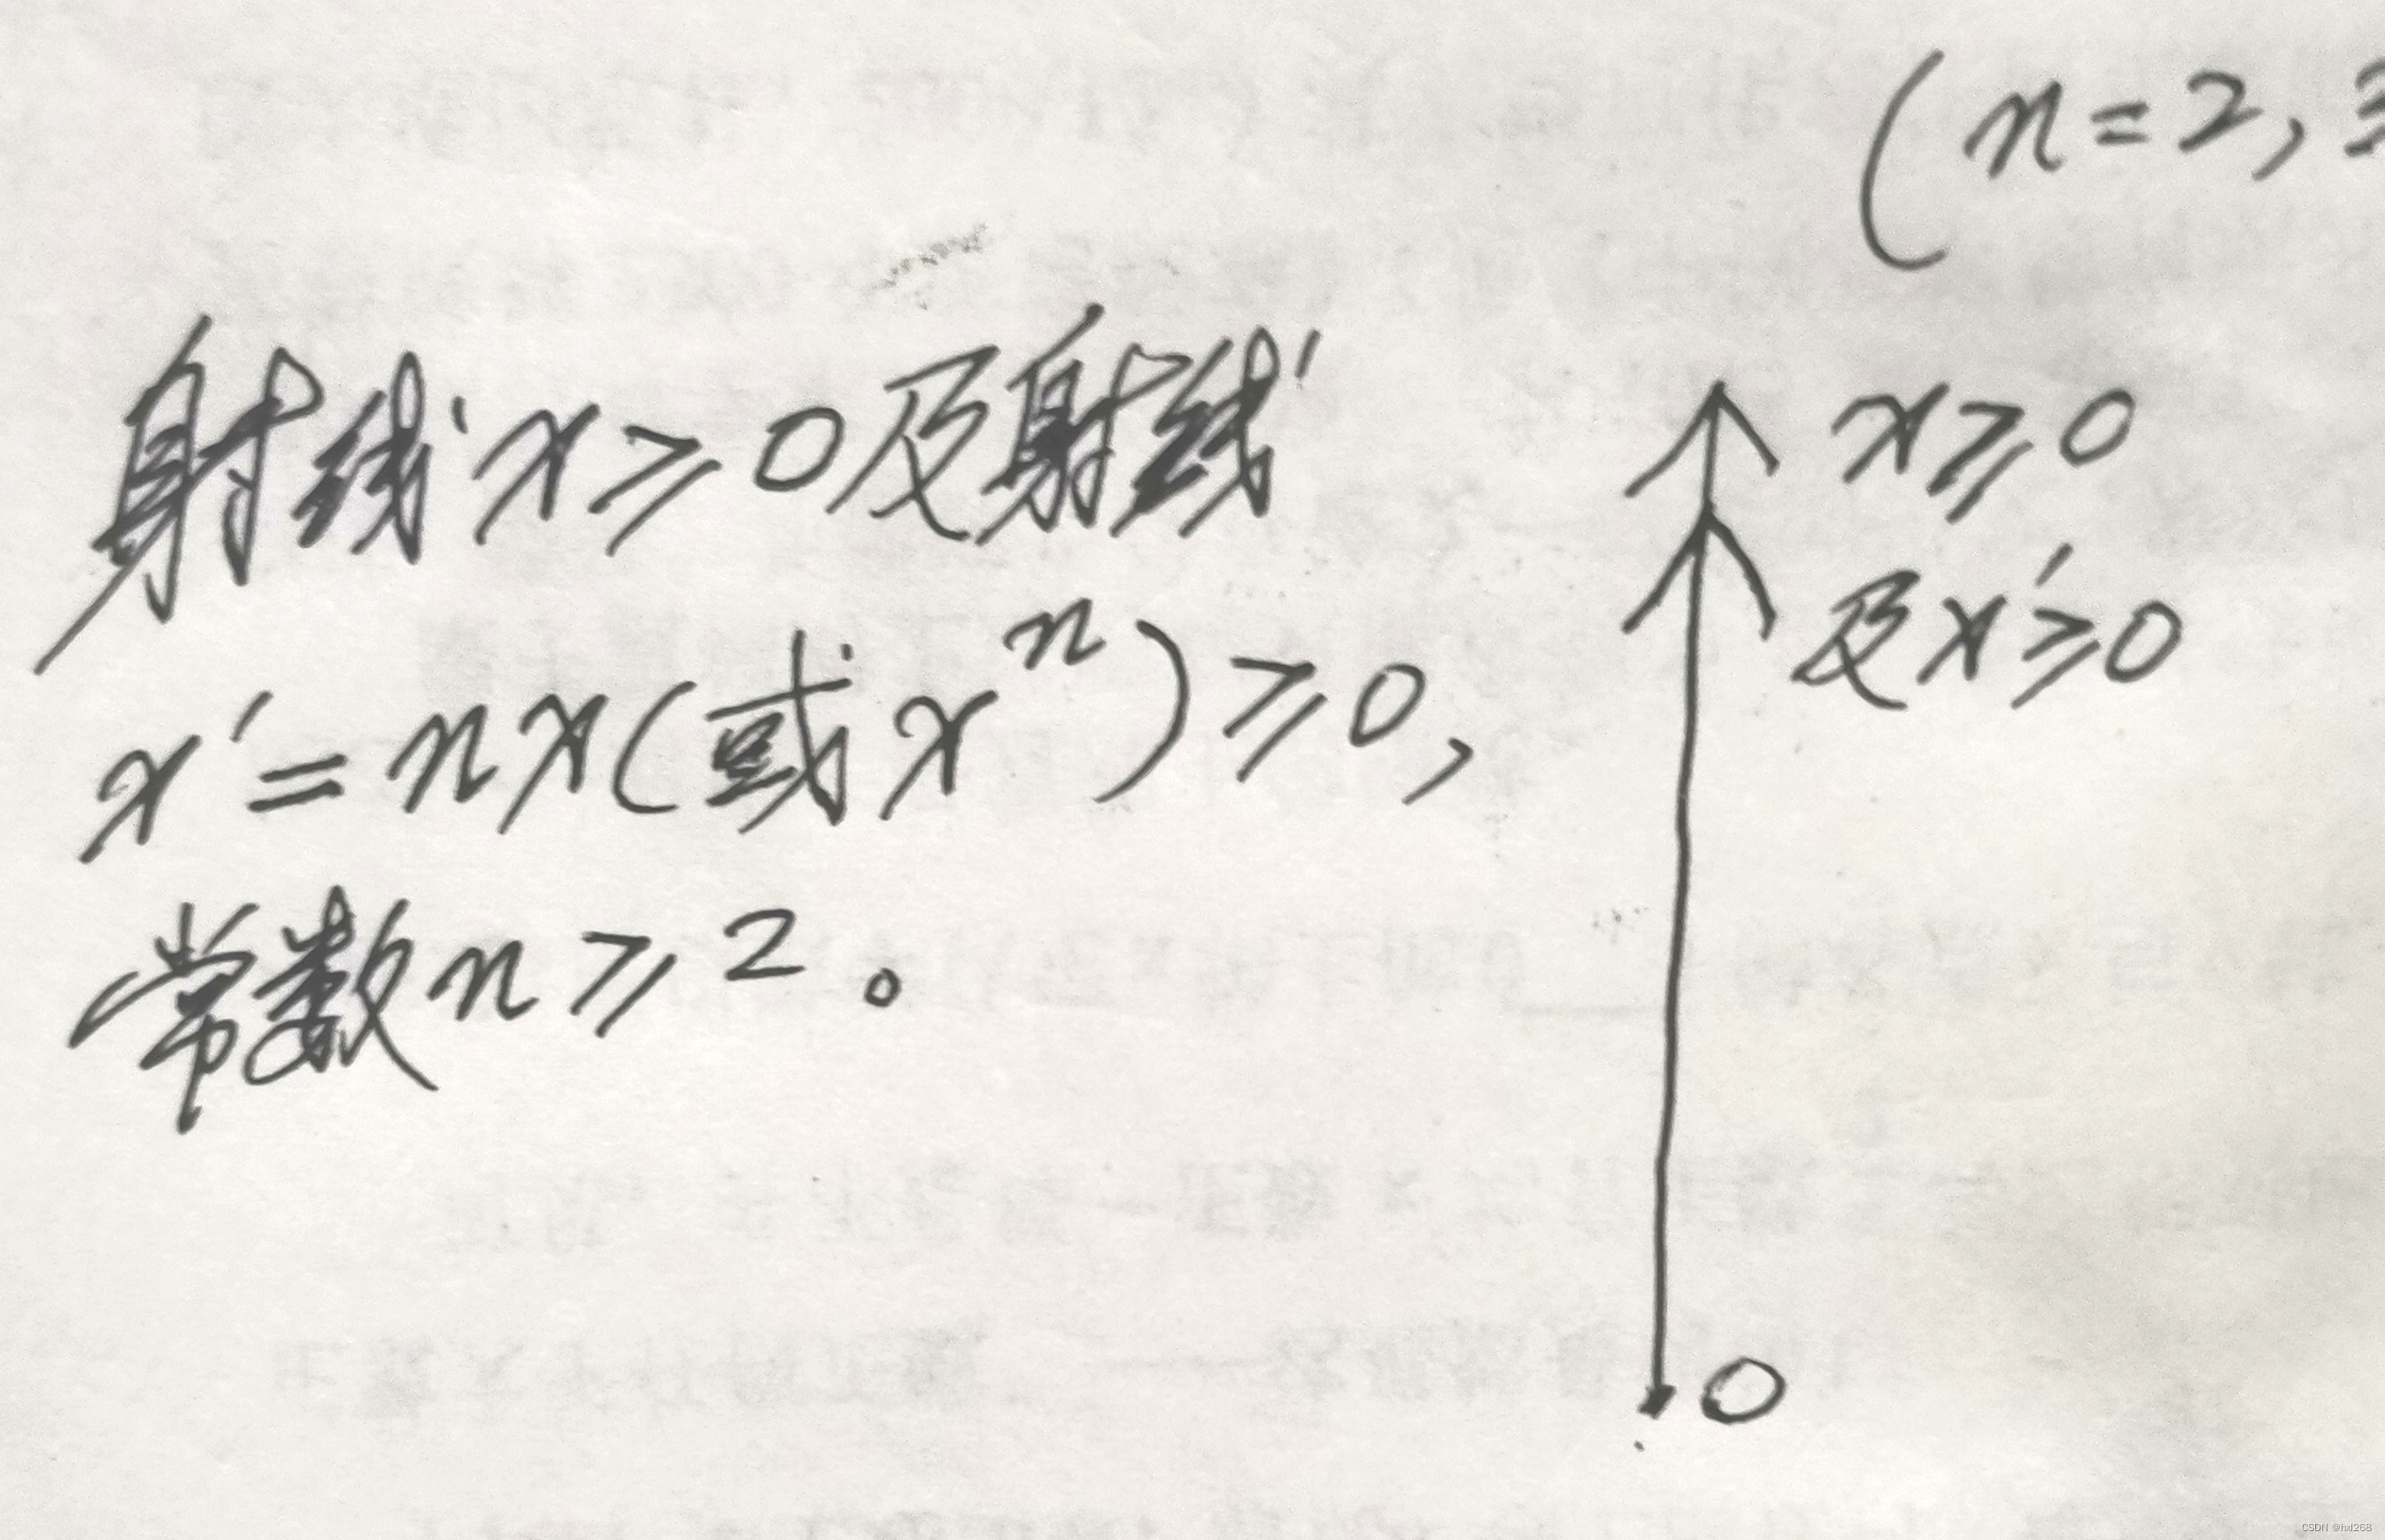 (n=2,3
射线x≥0及射线
x′=nx(或xⁿ)≥0,
常数n≥2。
x≥0
及x′≥0
O
CSDN @hxl268